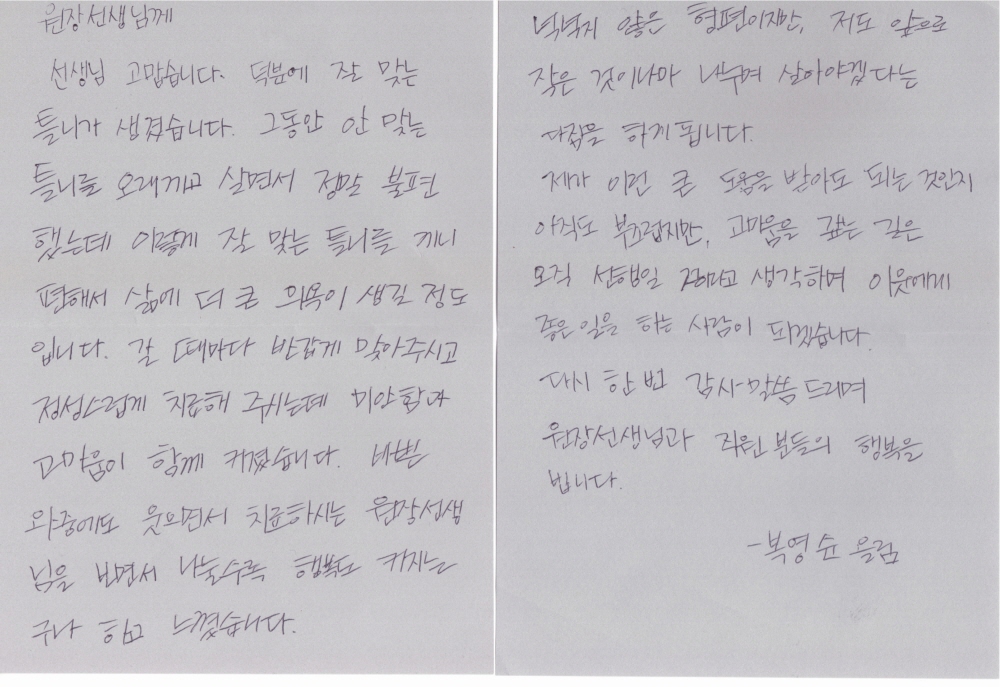 원장선생님께
선생님 고맙습니다. 덕분에 잘 맞는
틀니가 생겼습니다. 그동안 안 맞는
틀니를 오래끼고 살면서 정말 불편
했는데 이렇게 잘 맞는 틀니를 끼니
편해서 삶에 더 큰 의욕이 생길 정도
입니다. 갈 때마다 반갑게 맞아주시고
정성스럽게 치료해 주시는데 미안함과
고마움이 함께 커졌습니다. 바쁜
와중에도 웃으면서 치료하시는 원장선생
님을 보면서 나눌수록 행복도 커지는
구나 하고 느꼈습니다.
넉넉지 않은 형편이지만, 저도 앞으로
작은 것이나마 나누며 살아야겠다는
다짐을 하게 됩니다.
제가 이런 큰 도움을 받아도 되는 것인지
아직도 부끄럽지만, 고마움을 갚는 길은
오직 선행일 것이라고 생각하며 이웃에게
좋은 일을 하는 사람이 되겠습니다.
다시 한번 감사말씀 드리며
원장선생님과 직원 분들의 행복을
빕니다.
-복영순 올림